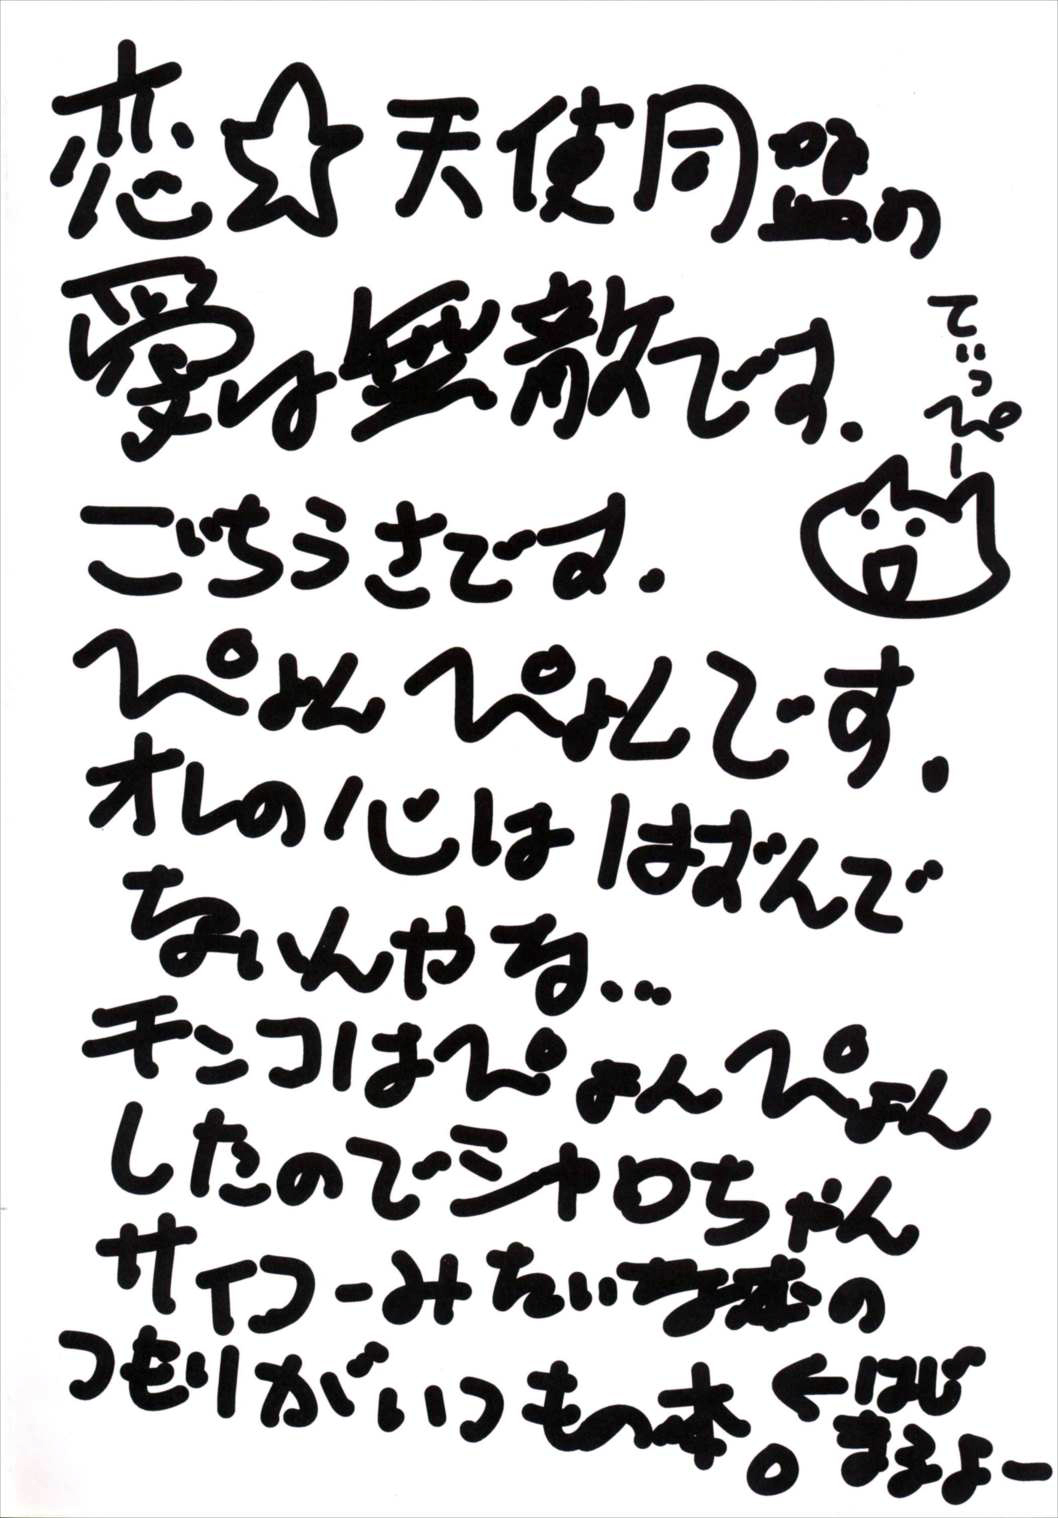 恋☆天使同盟の
愛は無敵です.
てぃっぴー
ごちうさです.
ぴょんぴょんです.
オレの心ははずんで
ないんやな…
チンコはぴょんぴょん
したのでシャロちゃん
サイコーみたいな本の
つもりがいつもの本。
←はじ
まるよー